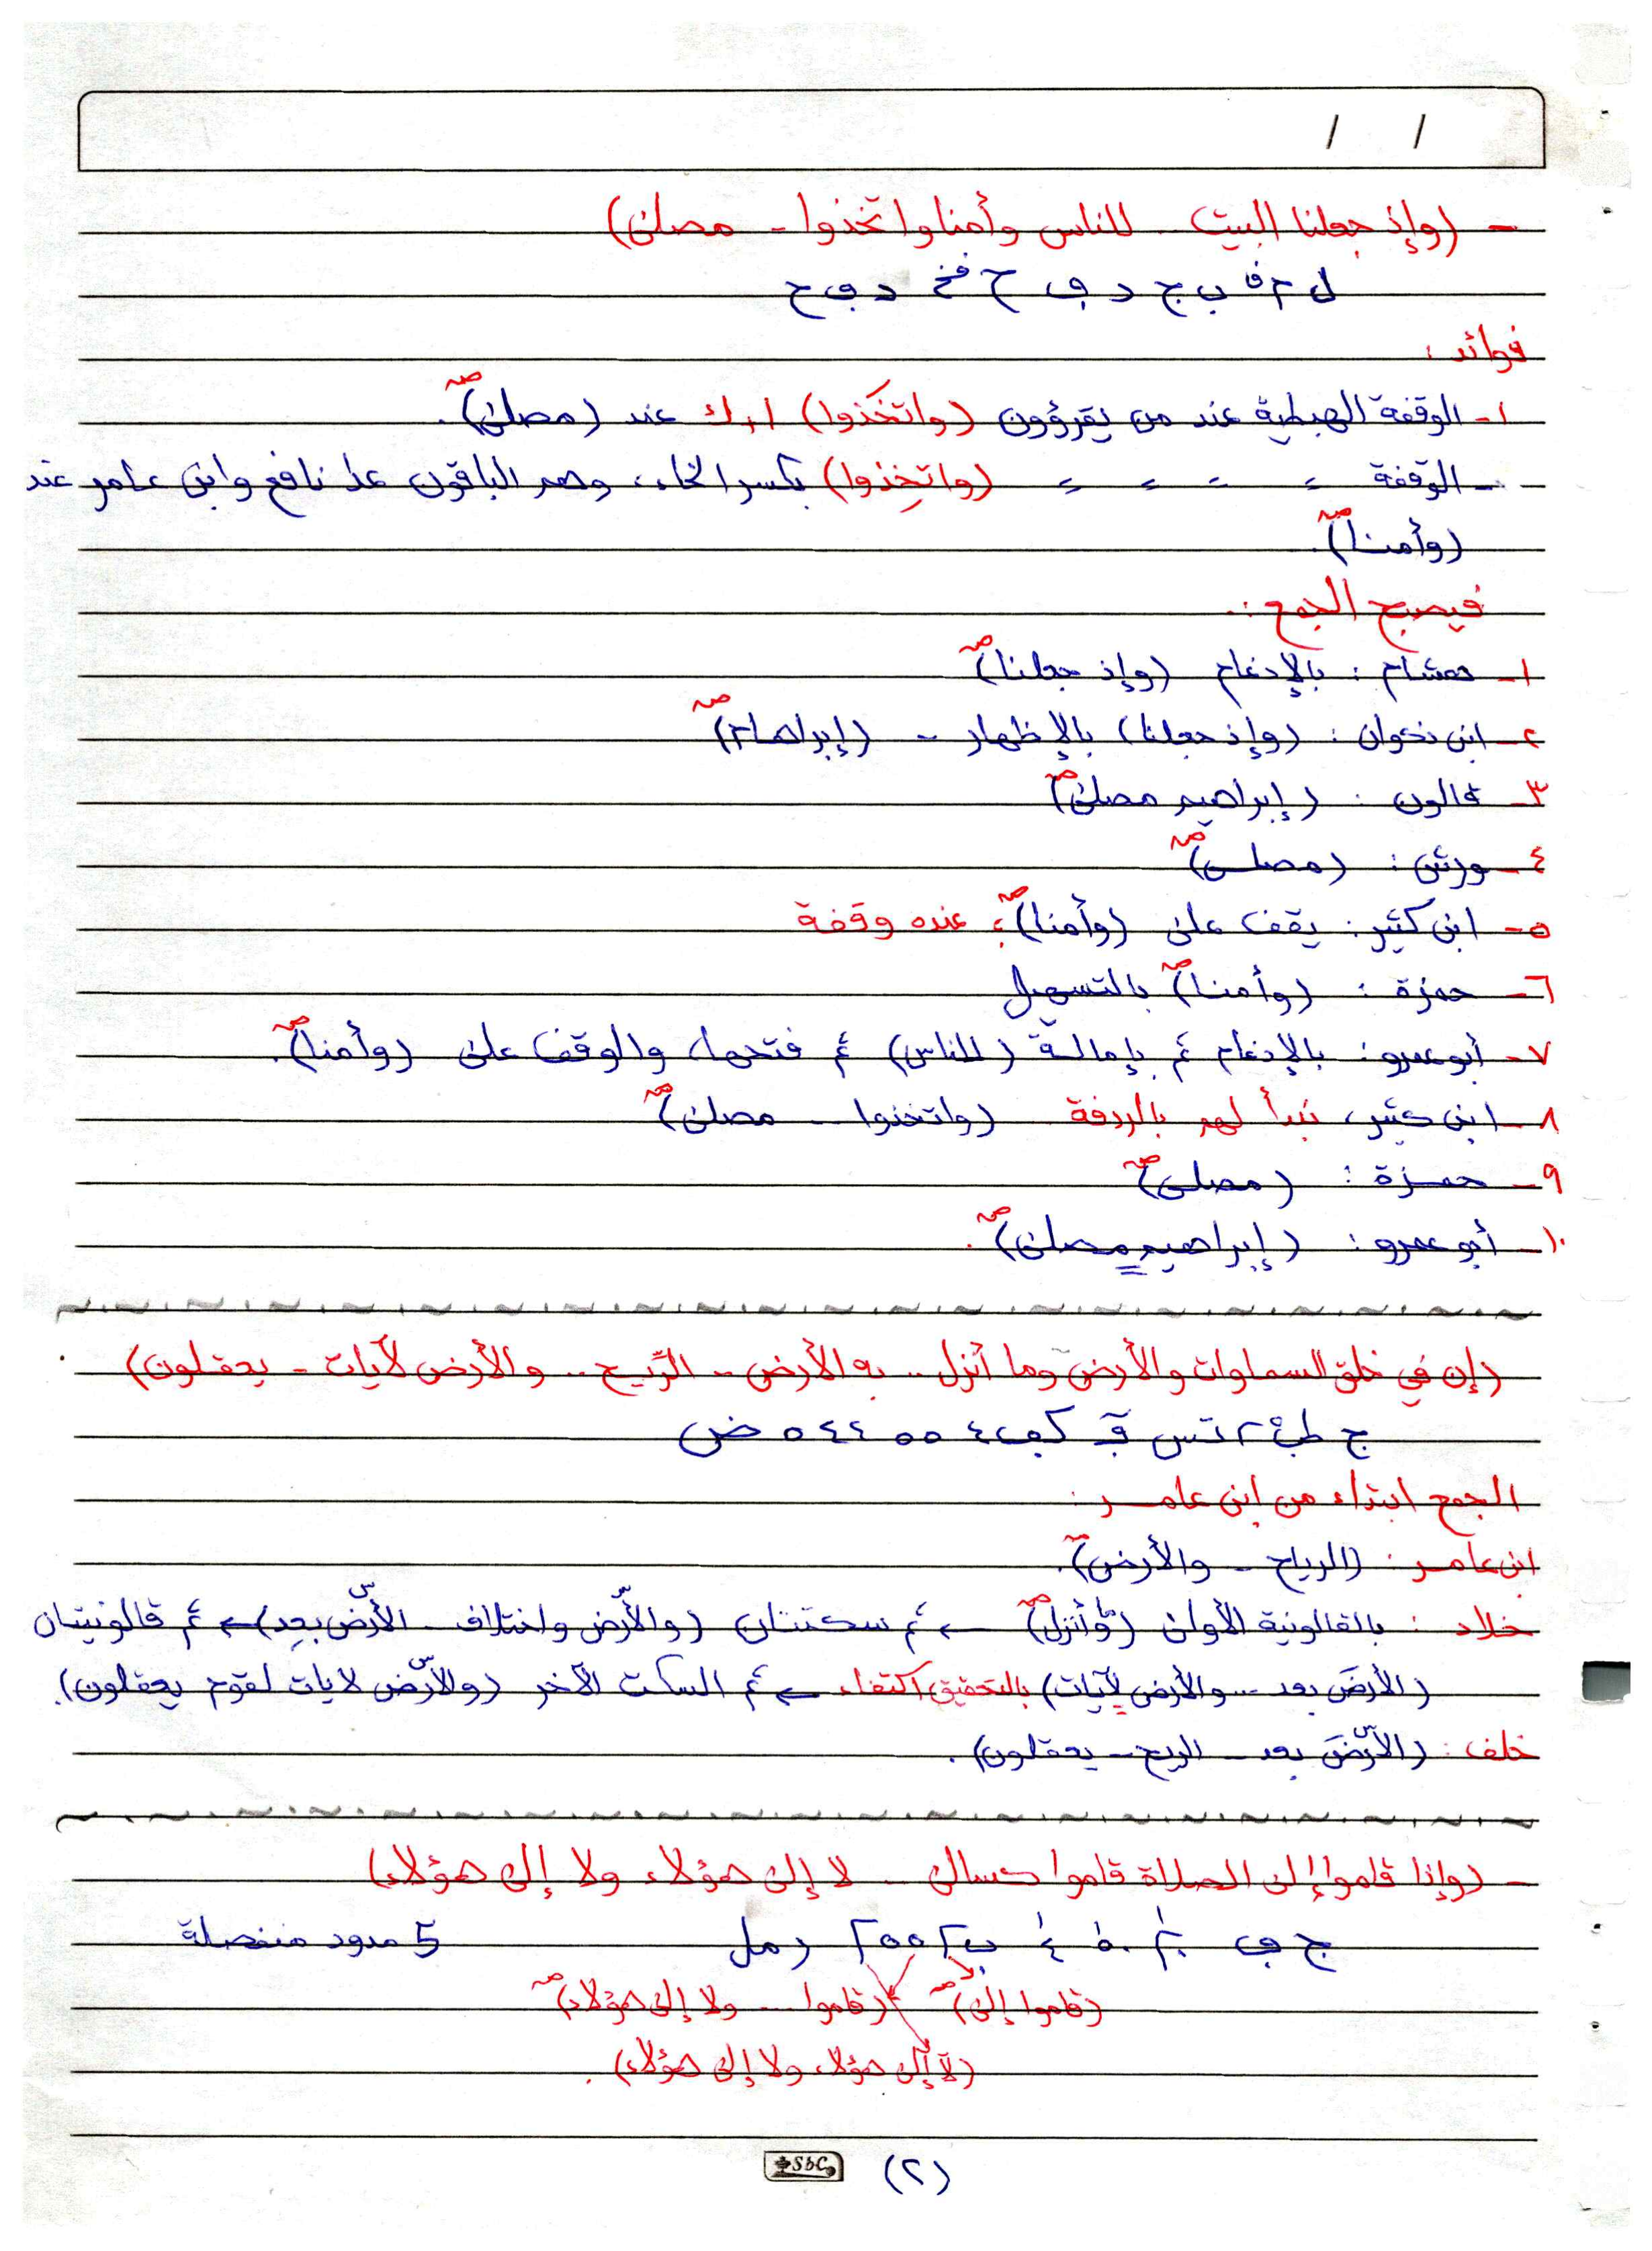 - (وإذ جعلنا البيت .. للناس وأمنا واتخذوا - مصلى)
ب ج د ح د ح
فوائد :
١- الوقفة الهبطية عند من يقرؤون (واتخَذوا) عند (مصلى)صـ.
- - الوقفة = = = = (واتخِذوا) بكسر الخاء، وهم الباقون عدا نافع وابن عامر عند
(وأمنا)صـ.
فيصبح الجمع :.
١- هشام : بالإدغام (وإذ جعلنا)صـ
٢- ابن ذكوان : (وإذ جعلنا) بالإظهار - (إبراهام)صـ
٣- قالون : (إبراهيم مصلى)صـ
٤- ورش : (مصلى)صـ
٥- ابن كثير : يقف على (وأمنا)صـ؛ عنده وقفة
٦- حمزة : (وأمنا)صـ بالتسهيل
٧- أبو عمرو : بالإدغام ثم بإمالة (للناس) ثم فتحها، والوقف على (وأمنا)صـ.
٨- ابن كثير، نبدأ لهم بالردفة (واتخذوا .. مصلى)صـ
٩- حمزة : (مصلى)صـ
١٠- أبو عمرو : (إبراهيم مصلى)صـ.
(إن في خلق السماوات والأرض وما أنزل .. به الأرض .. الرّيح .. والأرض لآيات - يعقلون)
ج ٤ ٥ ٥ ٤ ٤ ٥ ض
الجمع ابتداء من ابن عامر :
ابن عامر : (الرياح - والأرض)صـ.
خلاد : بالقالونية الأولى (وأنزل)صـ ← ثم سكتتان (والأرض واختلاف - الأرض بعد) ← ثم قالونيتان
(الأرضَ بعد ... والأرض لآيات) بالتحقيق اكتفاء ← ثم السكت الآخر (والأرض لآيات لقوم يعقلون).
خلف : (الأرضَ بعد - الريح - يعقلون).
- (وإذا قاموا إلى الصلاة قاموا كسالى .. لا إلى هؤلاء ولا إلى هؤلاء)
ج ب ٥ ٥ 5 مدود منفصلة
(قاموا إلى)صـ (قاموا ... ولا إلى هؤلاء)صـ
(لا إلى هؤلاء ولا إلى هؤلاء).
SbC (٢)